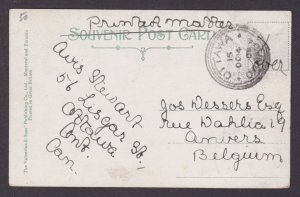 50
Printed Matter
SOUVENIR POST CARD
over
Avis Stewart
56 Lisgar St.
Ottawa
Ont.
Can.
Jos Wessers Esq
Rue Dahlia 19
Anvers
Belgium
OTTAWA
The Valentine & Sons' Publishing Co., Ltd., Montreal and Toronto.
Printed in Great Britain.